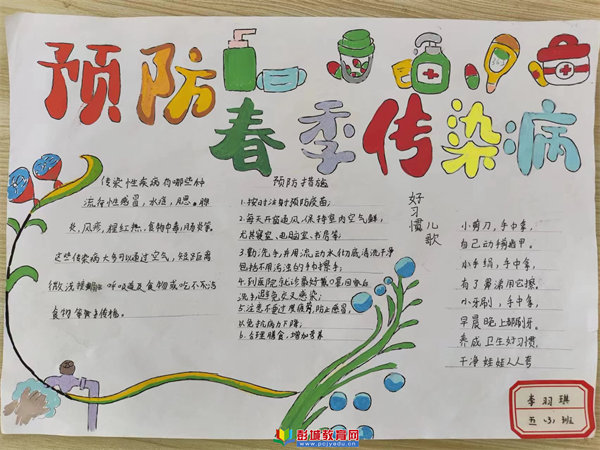 预防
春季传染病
传染性疾病有哪些种
流行性感冒，水痘，腮腺
炎，风疹，猩红热，食物中毒，肠炎等。
这些传染病大多可以通过空气，短距离
呼吸道及食物或吃不洁
食物等传播。
预防措施
1.按时注射预防疫苗；
2.每天开窗通风，保持室内空气新鲜，
尤其寝室、电脑室、书房等；
3.勤洗手，并用流动水彻底清洗干净
包括不用污浊的毛巾擦手，
4.到医院就诊最好戴口罩，回宿
洗手，避免交叉感染；
5.注意不要过度疲劳，防止感冒，
以免抗病力下降；
6.合理膳食，增加营养
好习惯儿歌
小剪刀，手中拿，
自己动，指甲。
小手绢，手中拿，
有了鼻涕用它擦，
小牙刷，手中拿，
早晨晚上都刷牙。
养成卫生好习惯，
干净娃娃人人夸
李羽琪
五(3)班
彭城教育网
www.pcjyedu.cn